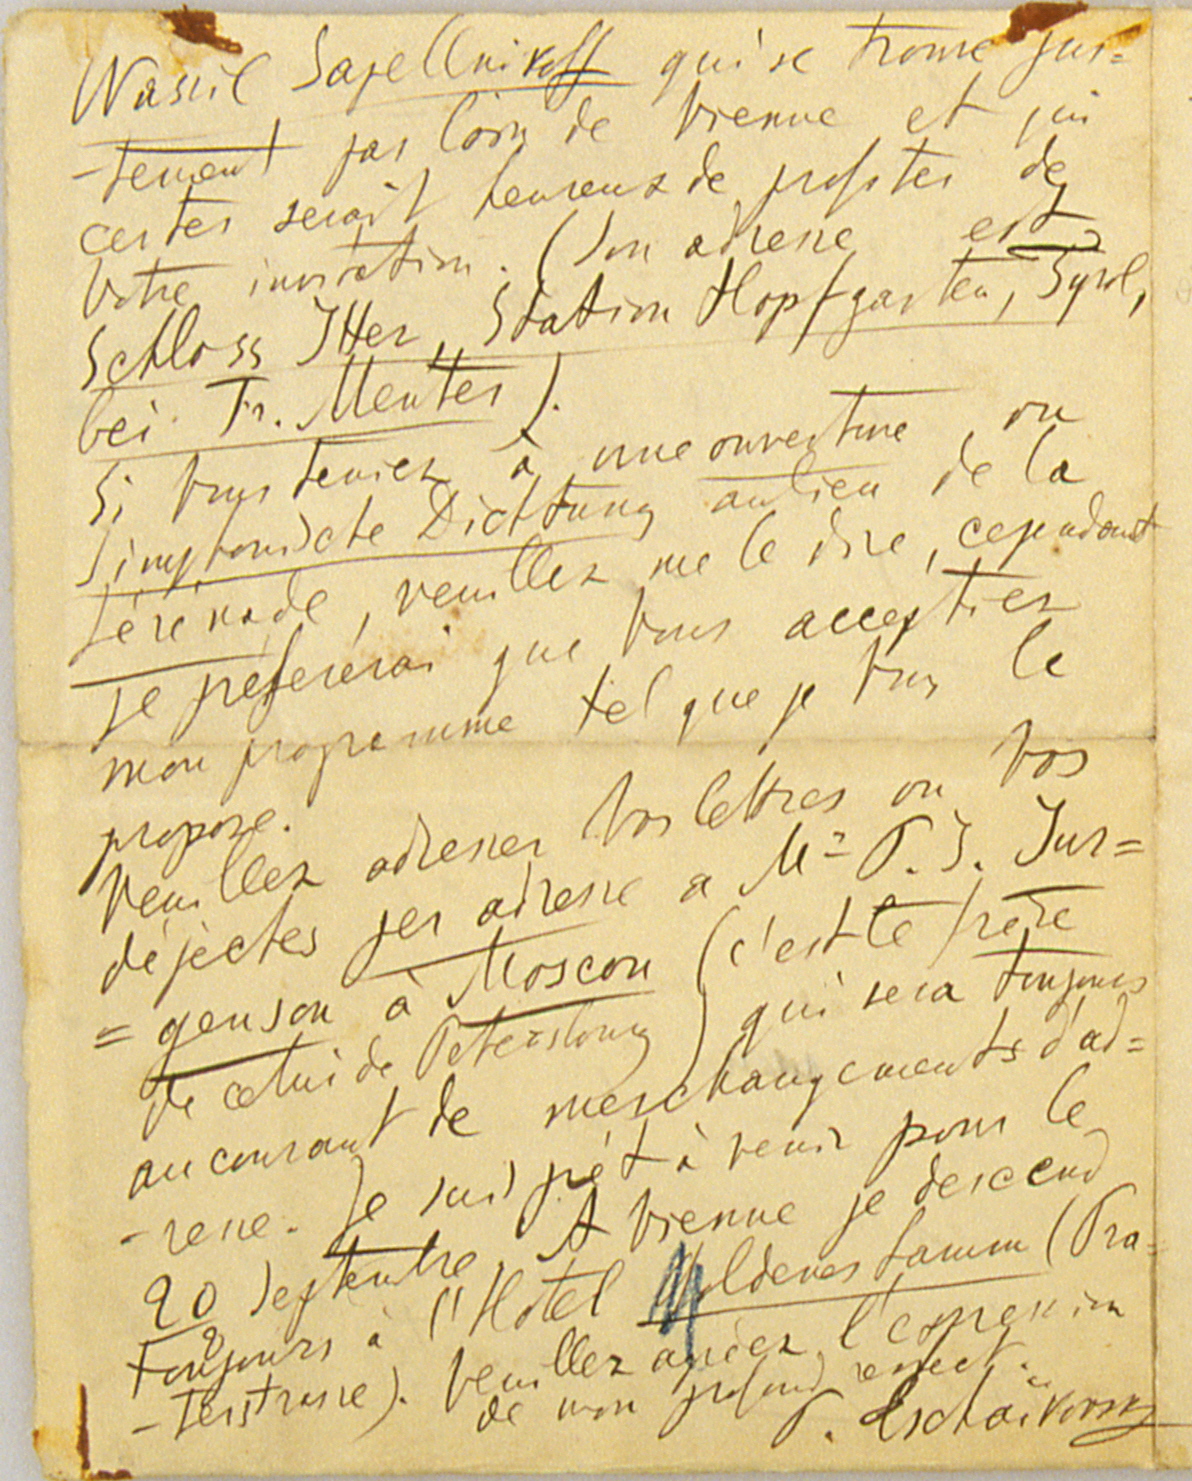 Wassil Sapellnikoff qui se trouve jus=
-tement pas loin de Vienne et qui
certes serait heureux de profiter de
Votre invitation. (Son adresse est
Schloss Itter, Station Hopfgarten, Tyrol,
bei Fr. Menter).
Si Vous teniez à une ouverture ou
Simphonische Dichtung au lieu de la
Sérénade, veuillez me le dire, cependant
je prefererai que Vous acceptiez
mon programme tel que je Vous le
propose.
Veuillez adresser Vos lettres ou Vos
dépèches per adresse a Mr P. I. Jur=
=genson à Moscou (c'est le frère
de celui de Petersbourg) qui sera toujours
au courant de mes changements d'ad=
-resse. Je suis prêt à venir pour le
20 Septembre. A Vienne je descend
toujours à l'Hotel Goldenes Lamm (Pra=
-terstrasse). Veuillez agréer l'expression
de mon profond respect.
P. Tschaïkovsky